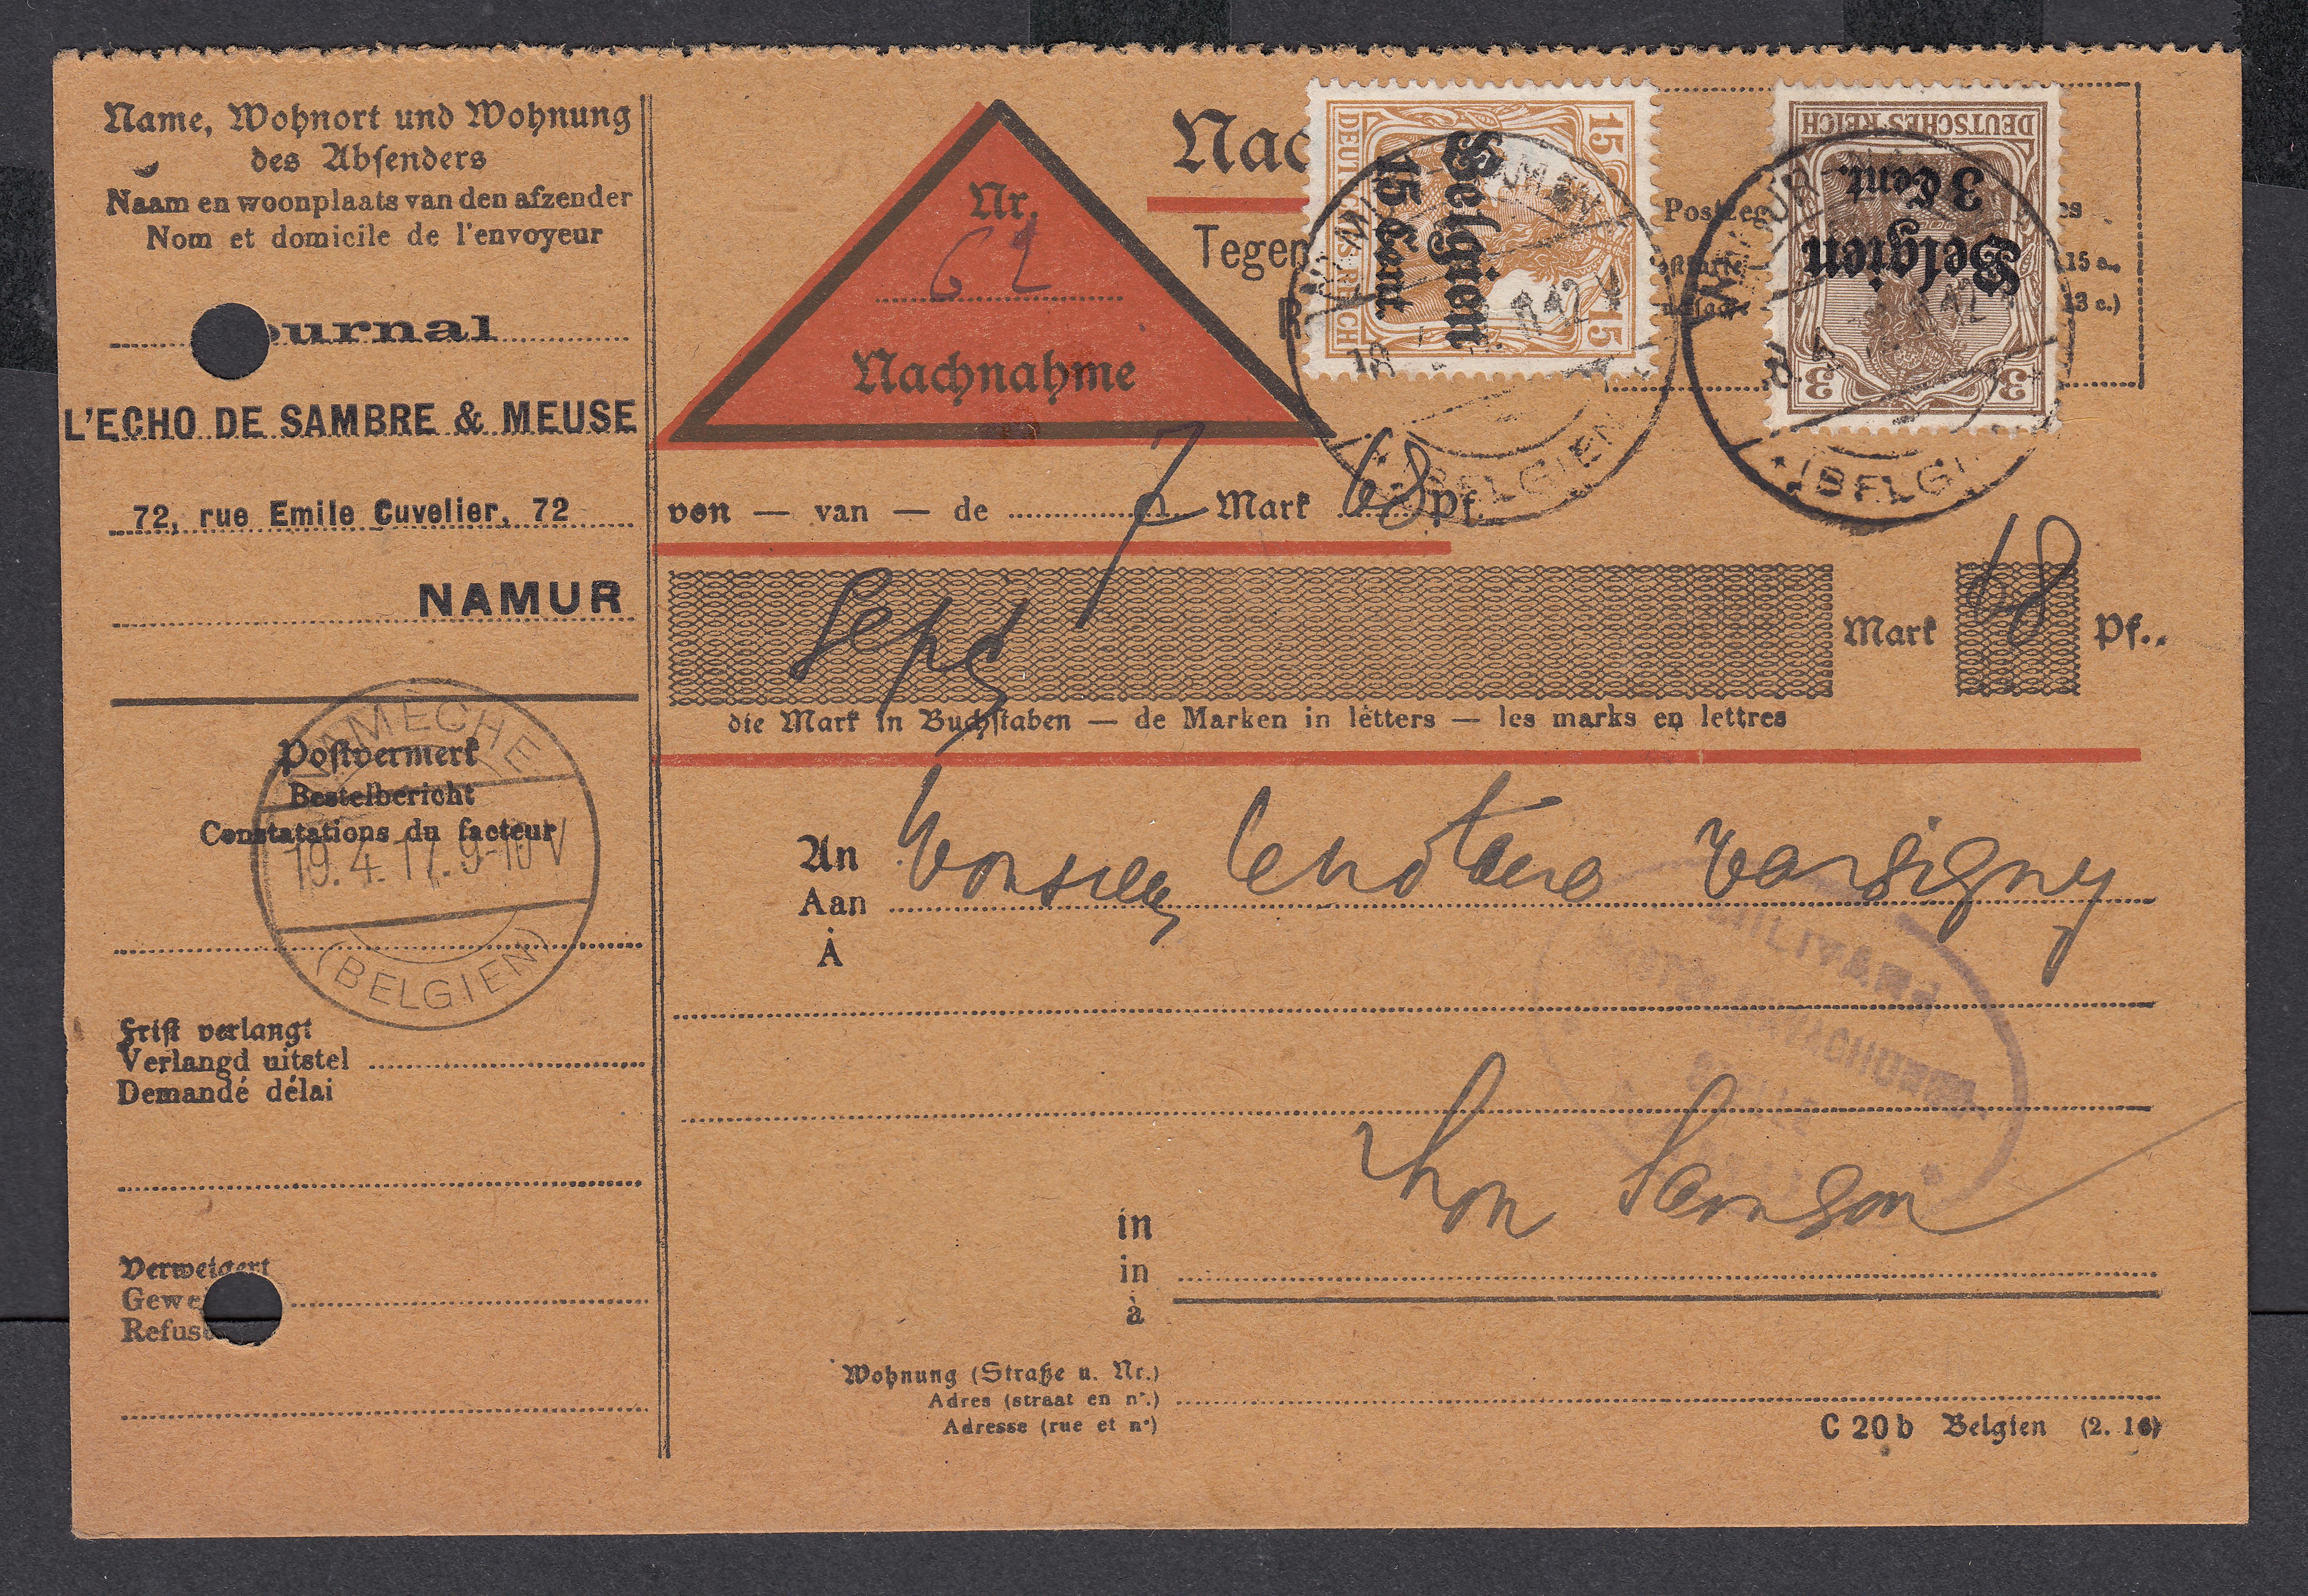 Name, Wohnort und Wohnung
des Absenders
Naam en woonplaats van den afzender
Nom et domicile de l'envoyeur
urnal
L'ECHO DE SAMBRE & MEUSE
72, rue Emile Cuvelier, 72
NAMUR
Postvermerk
Bestelbericht
Constatations du facteur
AMECHE
19.4.17. 9-10 V
(BELGIEN)
Frist verlangt
Verlangd uitstel
Demandé délai
Verweigert
Gewei
Refusé
Nr.
62
Nachnahme
Nac
Tegen
R
Postzeg
es
15 c.
13 c.)
DEUTSCHES REICH
15 15
Belgien
15 Cent.
DEUTSCHES REICH
3 3
Belgien
3 Cent.
(BELGIEN)
(BELGI
von — van — de 7 Mark 68 Pf.
Sept Mark 68 Pf.
die Mark in Buchstaben — de Marken in letters — les marks en lettres
An
Aan
À
Monsieur
in
in
à
Thon Samson
Wohnung (Straße u. Nr.)
Adres (straat en nr.)
Adresse (rue et no)
C 20 b Belgien (2. 16)